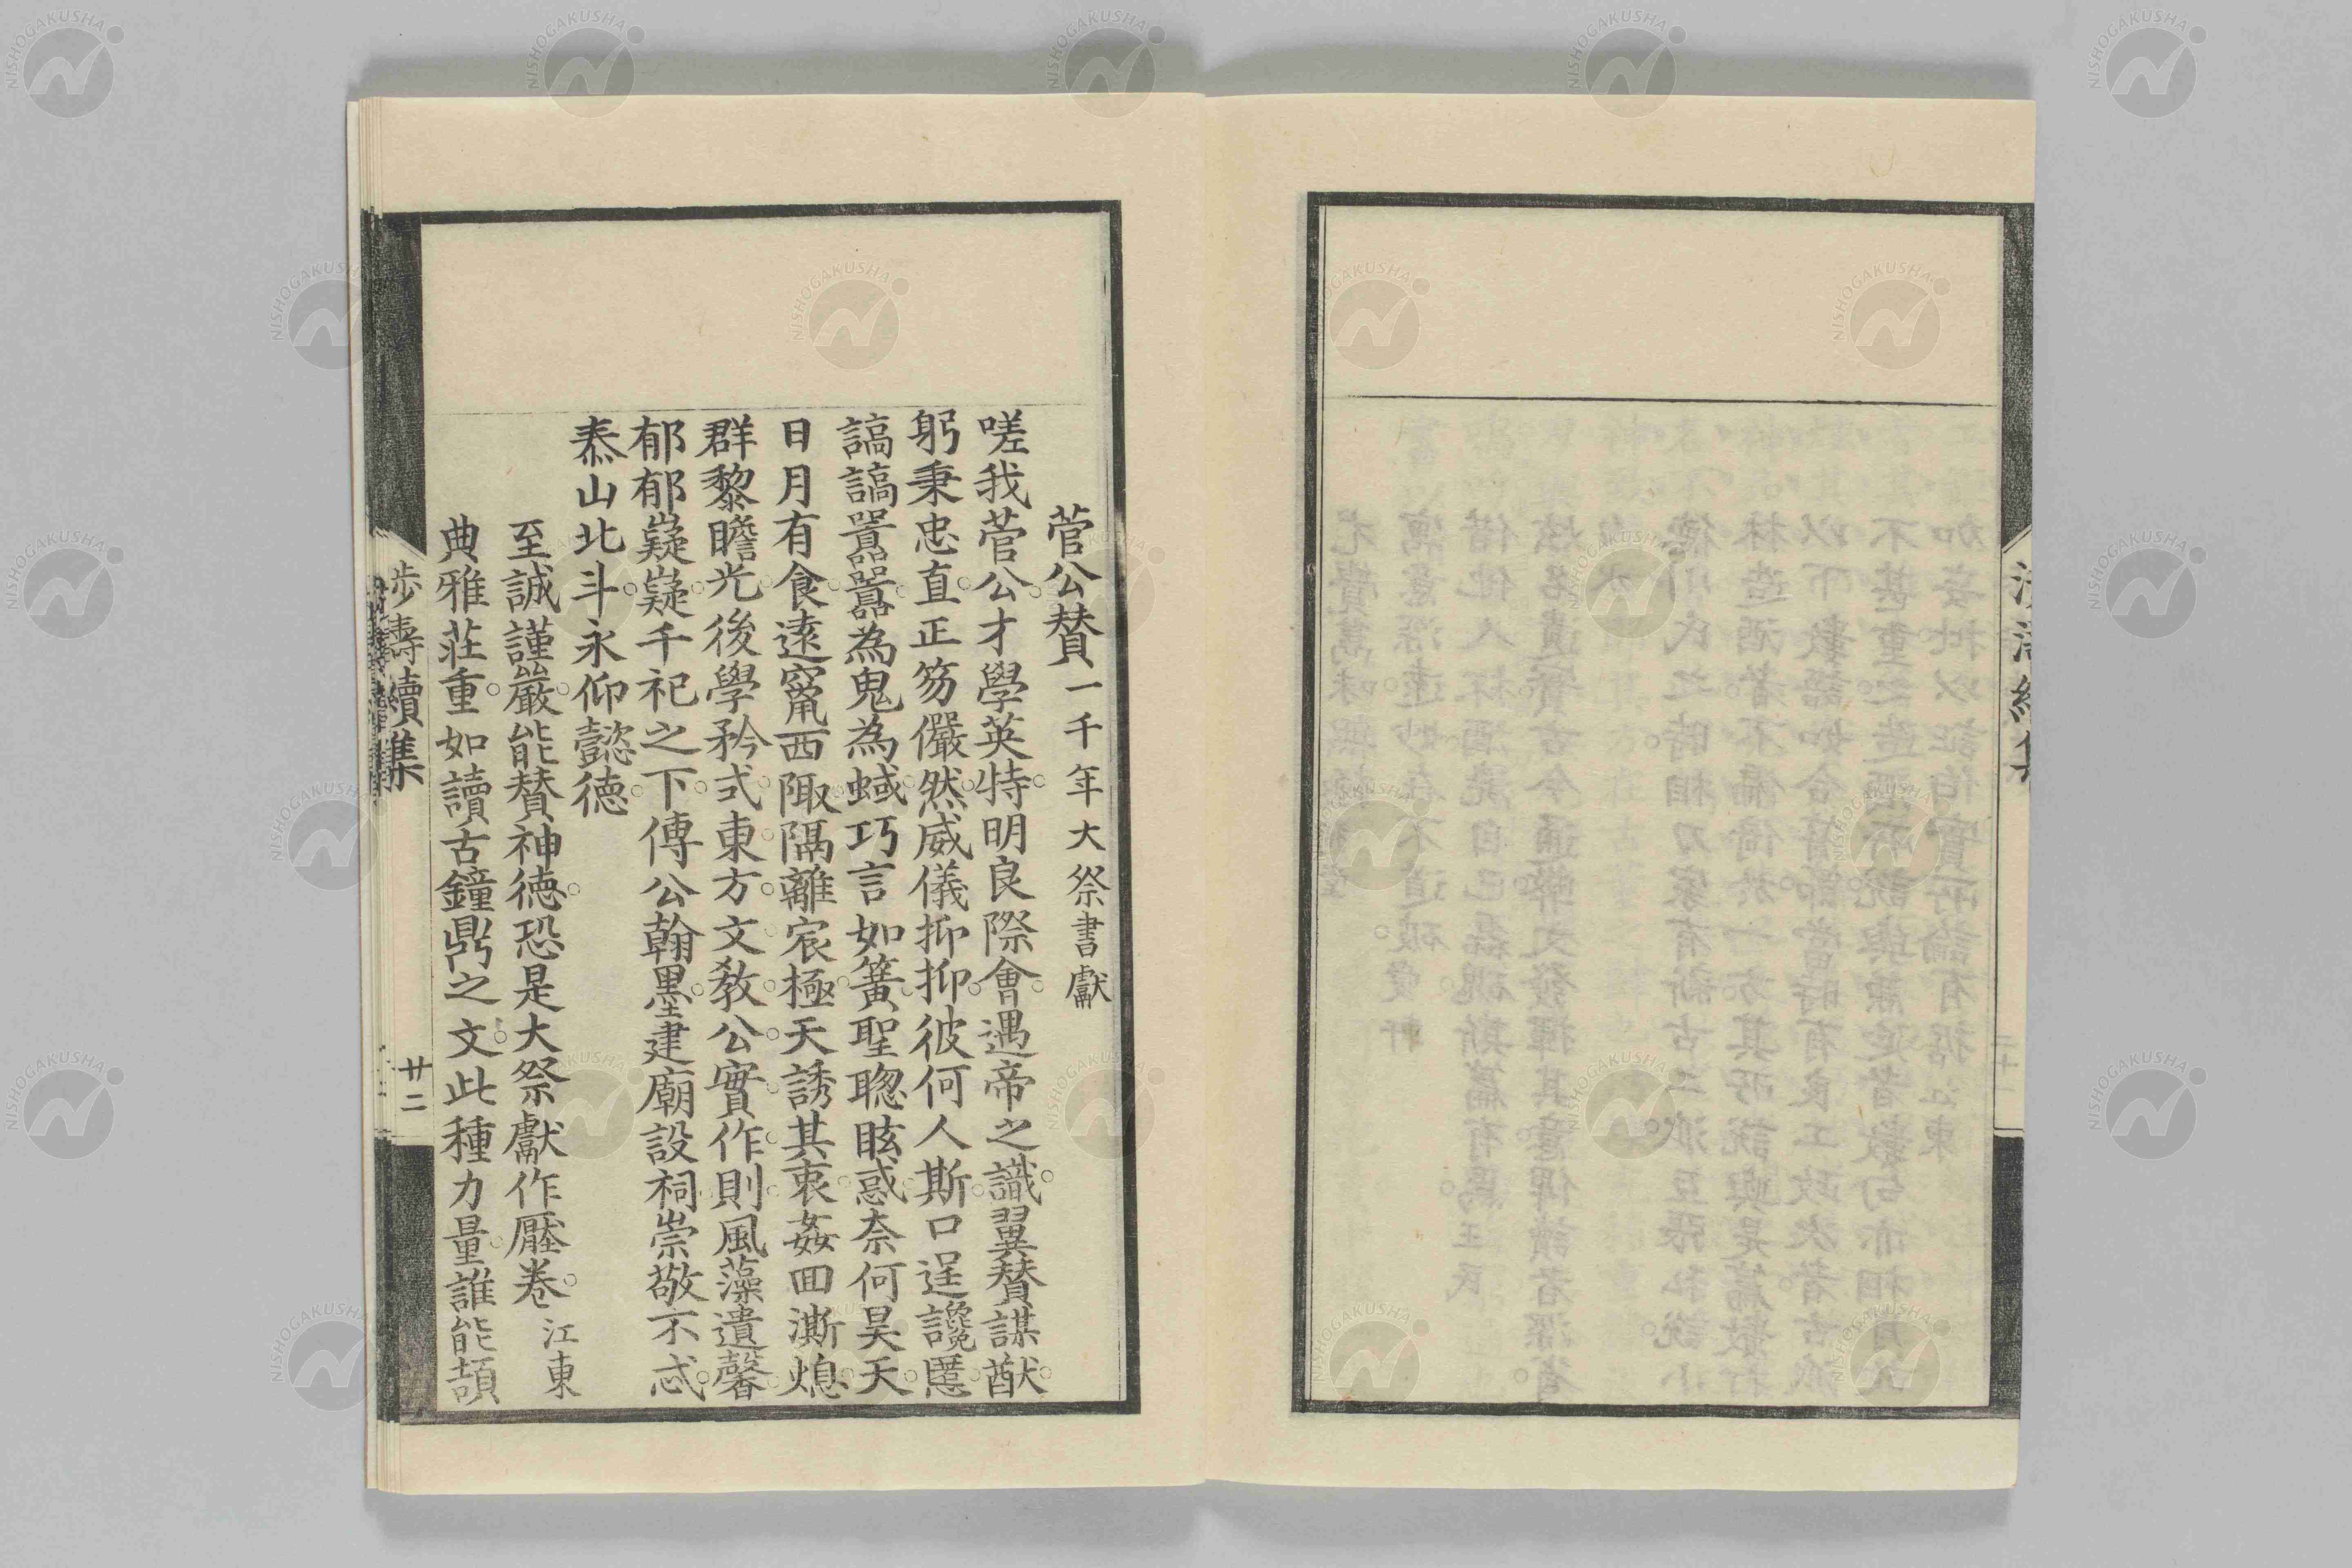 菅公賛一千年大祭書獻
嗟我菅公才學英特明良際會遇帝之識翼賛謀猷
躬秉忠直正笏儼然威儀抑抑彼何人斯口逞讒慝
謞謞嚣嚣為鬼為蜮巧言如簧聖聰眩惑奈何昊天
日月有食遠竄西陬隔離宸極天誘其衷姦回澌熄
群黎瞻光後學矜式東方文教公實作則風藻遺馨
郁郁嶷嶷千祀之下傳公翰墨建廟設祠崇敬不忒
泰山北斗永仰懿德
至誠謹嚴能賛神德恐是大祭獻作壓卷 江東
典雅莊重如讀古鐘鼎之文此種力量誰能頡
步壽續集
廿二
NISHOGAKUSHA